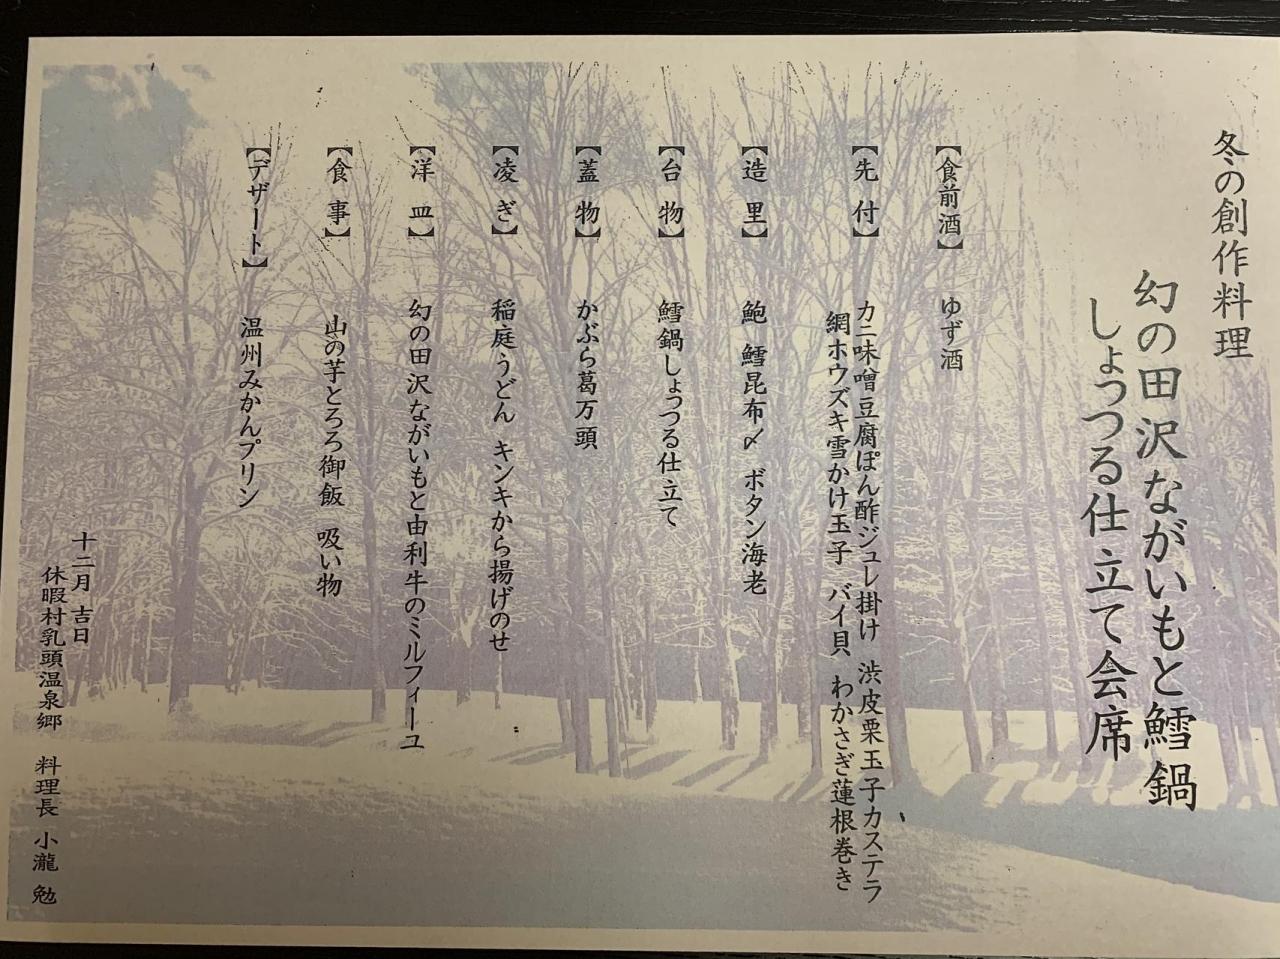 冬の創作料理
幻の田沢ながいもと鱈鍋
しょっつる仕立て会席
【食前酒】 ゆず酒
【先付】 カニ味噌豆腐ぽん酢ジュレ掛け 渋皮栗玉子カステラ
網ホウズキ雪かけ玉子 バイ貝 わかさぎ蓮根巻き
【造里】 鮑 鱈昆布〆 ボタン海老
【台物】 鱈鍋しょっつる仕立て
【蓋物】 かぶら葛万頭
【凌ぎ】 稲庭うどん キンキから揚げのせ
【洋皿】 幻の田沢ながいもと由利牛のミルフィーユ
【食事】 山の芋とろろ御飯 吸い物
【デザート】 温州みかんプリン
十二月 吉日
休暇村乳頭温泉郷 料理長 小瀧 勉